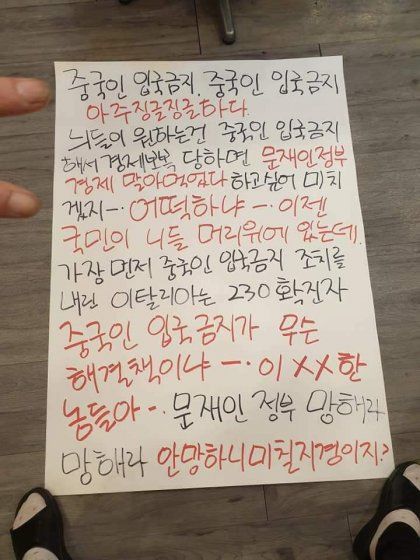 중국인 입국금지. 중국인 입국금지
아주징글징글하다.
늬들이 원하는건 중국인 입국금지
해서 경제보복 당하면 문재인정부
경제 말아먹었다 하고싶어 미치
겠지ㅡ. 어떡하냐ㅡ. 이젠
국민이 니들 머리위에 있는데.
가장 먼저 중국인 입국금지 조치를
내린 이탈리아는 230 확진자
중국인 입국금지가 무슨
해결책이냐ㅡ. 이 XX한
놈들아ㅡ. 문재인 정부 망해라
망해라 안망하니미칠지경이지?